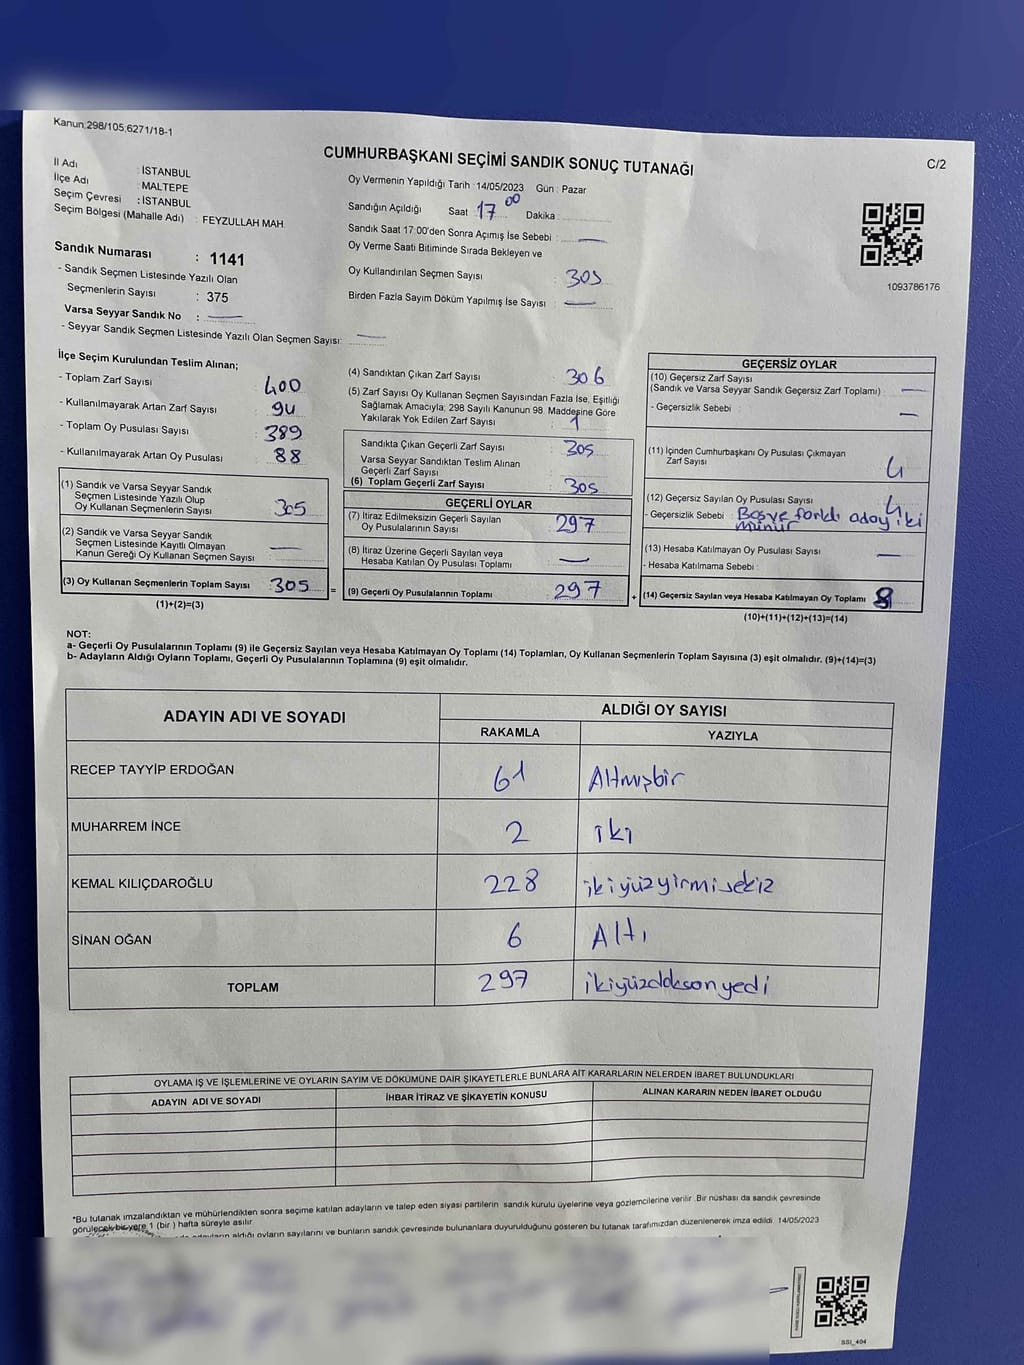 Kanun.298/105,6271/18-1
CUMHURBAŞKANI SEÇİMİ SANDIK SONUÇ TUTANAĞI
C/2
İl Adı : İSTANBUL
İlçe Adı : MALTEPE
Seçim Çevresi : İSTANBUL
Seçim Bölgesi (Mahalle Adı) : FEYZULLAH MAH
Sandık Numarası : 1141
- Sandık Seçmen Listesinde Yazılı Olan
Seçmenlerin Sayısı : 375
Varsa Seyyar Sandık No : —
- Seyyar Sandık Seçmen Listesinde Yazılı Olan Seçmen Sayısı: —
Oy Vermenin Yapıldığı Tarih : 14/05/2023 Gün : Pazar
Sandığın Açıldığı Saat 17 00 Dakika :
Sandık Saat 17:00'den Sonra Açımış İse Sebebi : —
Oy Verme Saati Bitiminde Sırada Bekleyen ve
Oy Kullandırılan Seçmen Sayısı : 305
Birden Fazla Sayım Döküm Yapılmış İse Sayısı : —
1093786176
İlçe Seçim Kurulundan Teslim Alınan;
- Toplam Zarf Sayısı : 400
- Kullanılmayarak Artan Zarf Sayısı : 94
- Toplam Oy Pusulası Sayısı : 389
- Kullanılmayarak Artan Oy Pusulası : 88
(1) Sandık ve Varsa Seyyar Sandık
Seçmen Listesinde Yazılı Olup
Oy Kullanan Seçmenlerin Sayısı : 305
(2) Sandık ve Varsa Seyyar Sandık
Seçmen Listesinde Kayıtlı Olmayan
Kanun Gereği Oy Kullanan Seçmen Sayısı : —
(3) Oy Kullanan Seçmenlerin Toplam Sayısı : 305 =
(1)+(2)=(3)
(4) Sandıktan Çıkan Zarf Sayısı : 306
(5) Zarf Sayısı Oy Kullanan Seçmen Sayısından Fazla İse, Eşitliği
Sağlamak Amacıyla; 298 Sayılı Kanunun 98. Maddesine Göre
Yakılarak Yok Edilen Zarf Sayısı : 1
Sandıkta Çıkan Geçerli Zarf Sayısı : 305
Varsa Seyyar Sandıktan Teslim Alınan
Geçerli Zarf Sayısı :
(6) Toplam Geçerli Zarf Sayısı : 305
GEÇERLİ OYLAR
(7) İtiraz Edilmeksizin Geçerli Sayılan
Oy Pusulalarının Sayısı : 297
(8) İtiraz Üzerine Geçerli Sayılan veya
Hesaba Katılan Oy Pusulası Toplamı : —
(9) Geçerli Oy Pusulalarının Toplamı : 297 +
GEÇERSİZ OYLAR
(10) Geçersiz Zarf Sayısı
(Sandık ve Varsa Seyyar Sandık Geçersiz Zarf Toplamı) : —
- Geçersizlik Sebebi : —
(11) İçinden Cumhurbaşkanı Oy Pusulası Çıkmayan
Zarf Sayısı : 4
(12) Geçersiz Sayılan Oy Pusulası Sayısı : 4
- Geçersizlik Sebebi : Boş ve farklı aday iki
mühür
(13) Hesaba Katılmayan Oy Pusulası Sayısı : —
- Hesaba Katılmama Sebebi :
(14) Geçersiz Sayılan veya Hesaba Katılmayan Oy Toplamı : 8
(10)+(11)+(12)+(13)=(14)
NOT:
a- Geçerli Oy Pusulalarının Toplamı (9) ile Geçersiz Sayılan veya Hesaba Katılmayan Oy Toplamı (14) Toplamları, Oy Kullanan Seçmenlerin Toplam Sayısına (3) eşit olmalıdır. (9)+(14)=(3)
b- Adayların Aldığı Oyların Toplamı, Geçerli Oy Pusulalarının Toplamına (9) eşit olmalıdır.
ADAYIN ADI VE SOYADI
ALDIĞI OY SAYISI
RAKAMLA YAZIYLA
RECEP TAYYİP ERDOĞAN 61 Altmışbir
MUHARREM İNCE 2 iki
KEMAL KILIÇDAROĞLU 228 ikiyüzyirmisekiz
SİNAN OĞAN 6 Altı
TOPLAM 297 ikiyüzdoksanyedi
OYLAMA İŞ VE İŞLEMLERİNE VE OYLARIN SAYIM VE DÖKÜMÜNE DAİR ŞİKAYETLERLE BUNLARA AİT KARARLARIN NELERDEN İBARET BULUNDUKLARI
ADAYIN ADI VE SOYADI İHBAR İTİRAZ VE ŞİKAYETİN KONUSU ALINAN KARARIN NEDEN İBARET OLDUĞU
*Bu tutanak imzalandıktan ve mühürlendikten sonra seçime katılan adayların ve talep eden siyasi partilerin sandık kurulu üyelerine veya gözlemcilerine verilir. Bir nüshası da sandık çevresinde
görülecek bir yere 1 (bir) hafta süreyle asılır.
adayların aldığı oyların sayılarını ve bunların sandık çevresinde bulunanlara duyurulduğunu gösteren bu tutanak tarafımızdan düzenlenerek imza edildi. 14/05/2023
SSI_404